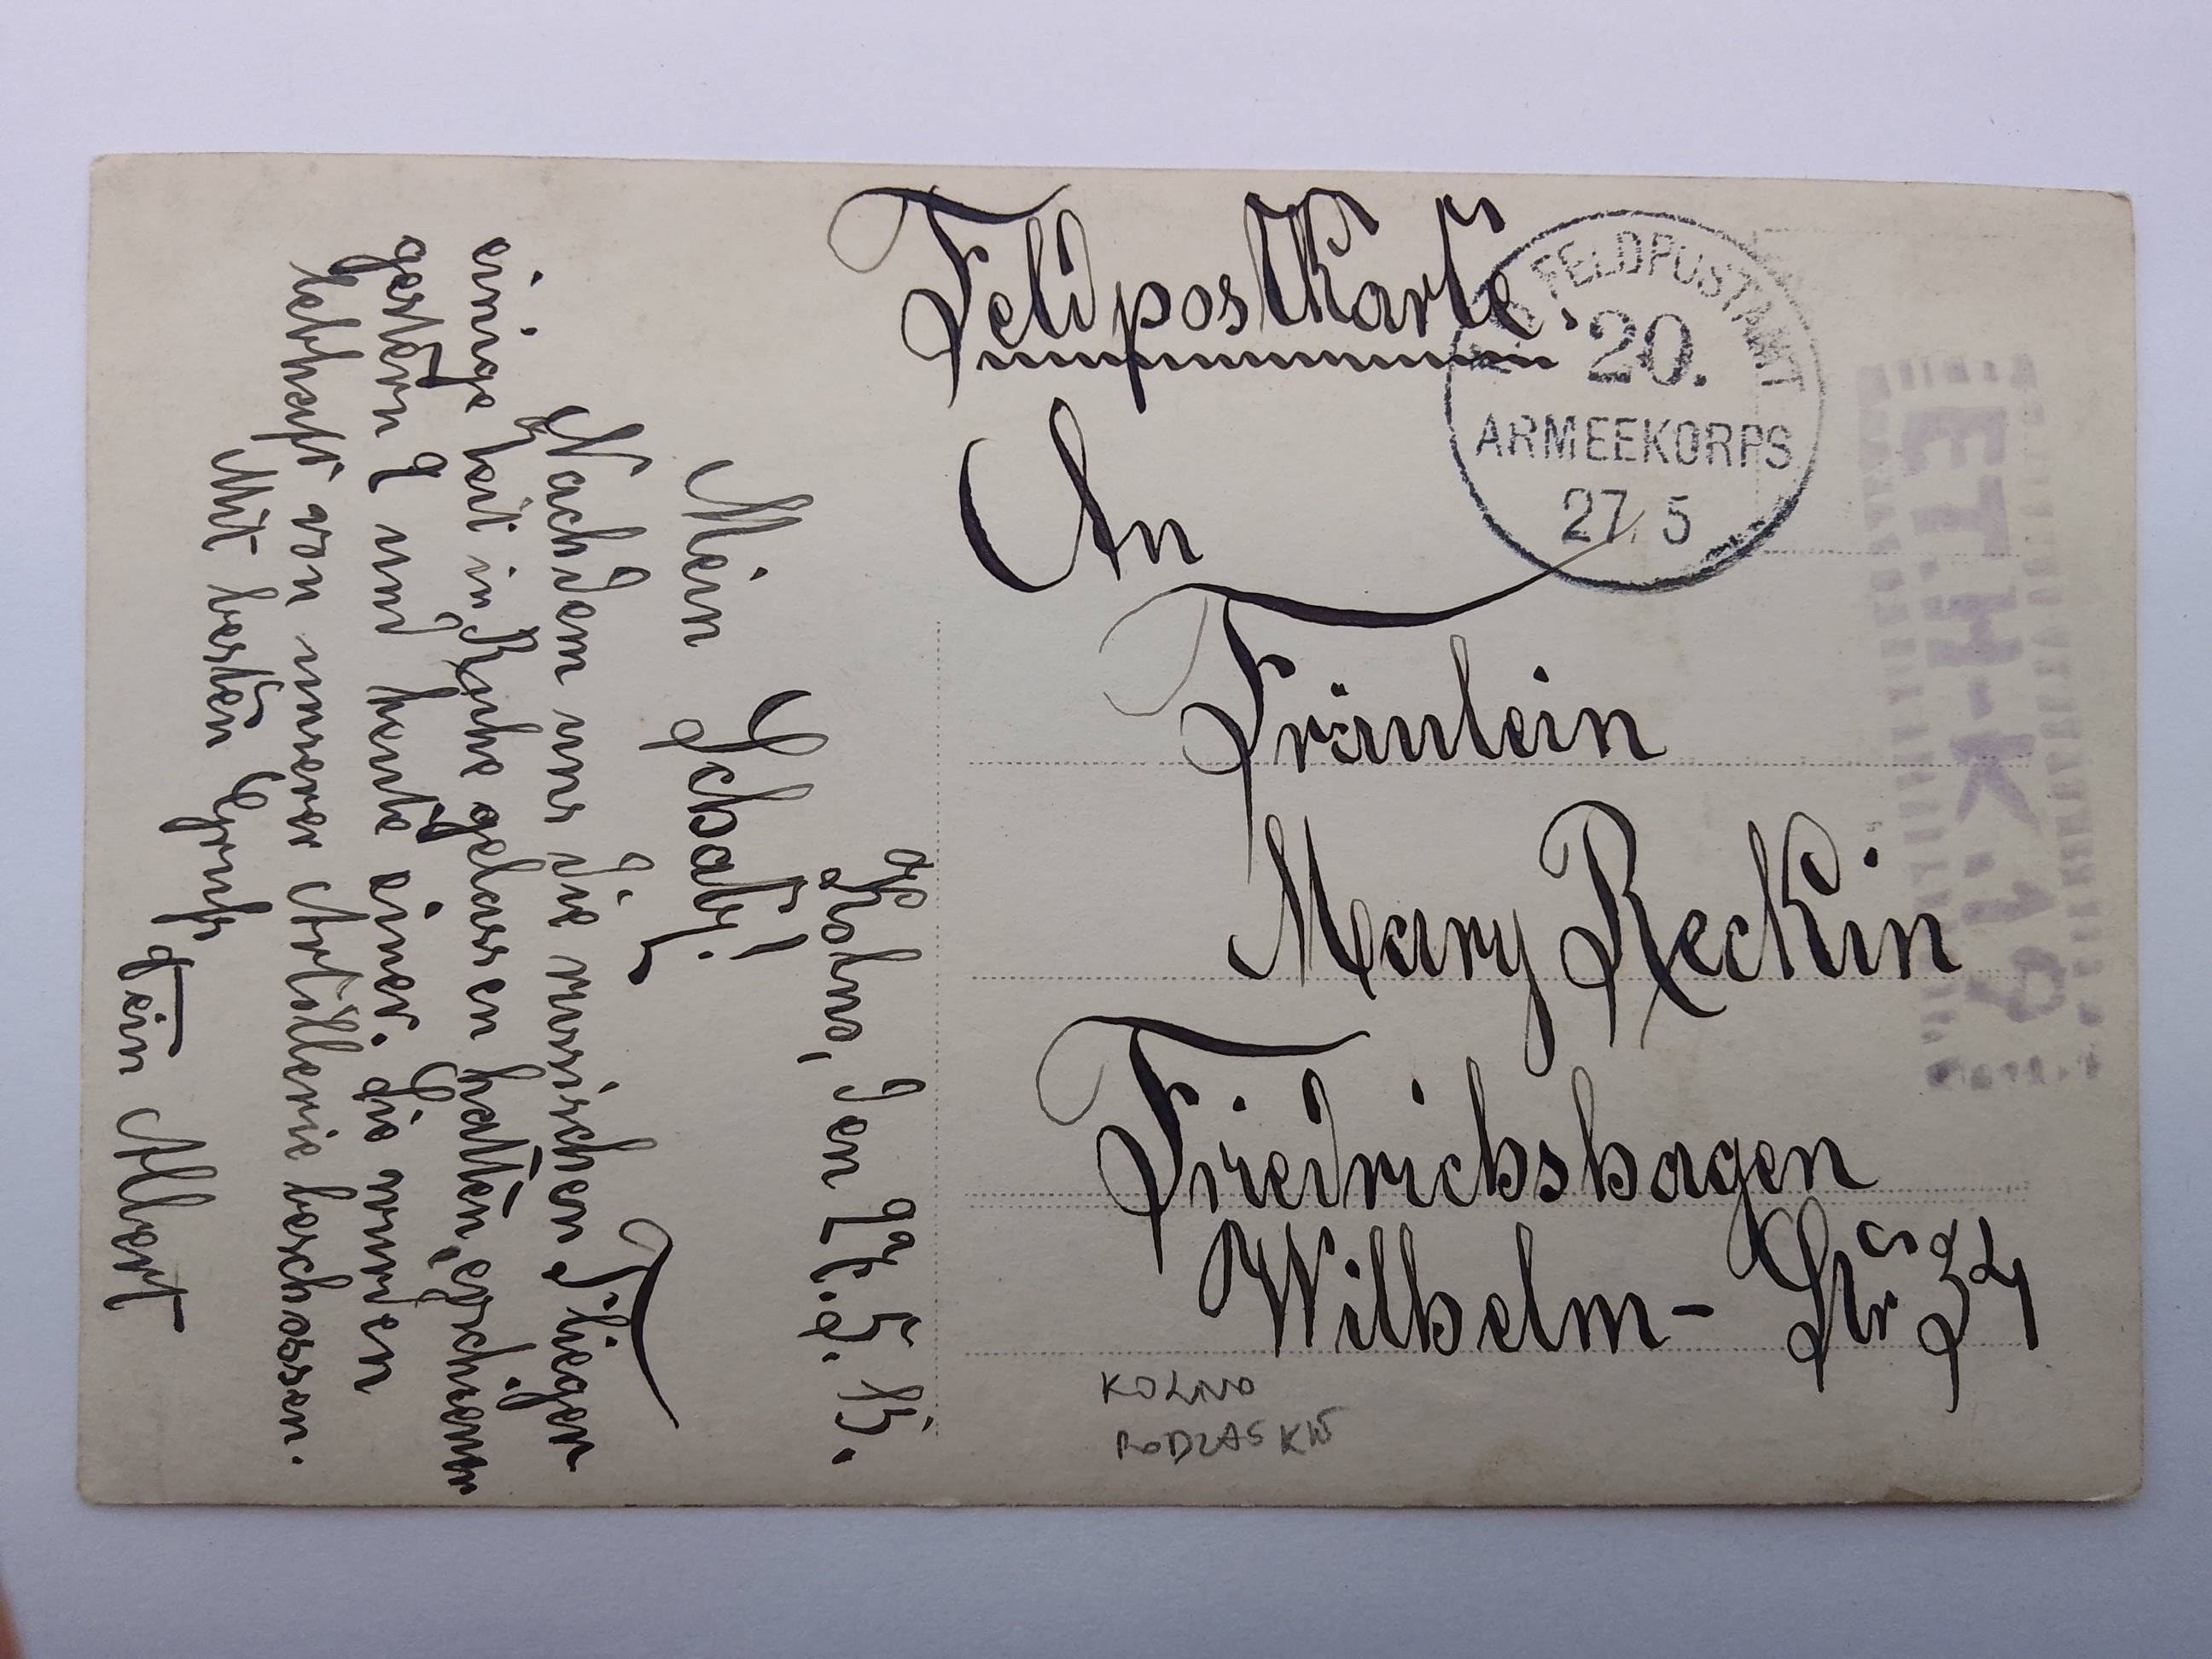 Feldpostkarte.
FELDPOSTAMT
20.
ARMEEKORPS
27. 5
An
Fräulein
Mary Reckin
Friedrichshagen
Wilhelm-Str. 34
KOLNO
Kolno, den 27. 5. 15.
Mein Schatz!
Nachdem uns die russischen Flieger
einige Zeit in Ruhe gelassen hatten, erschienen
gestern 2 und heute einer. Sie wurden
lebhaft von unserer Artillerie beschossen.
Mit besten Gruß
Dein Albert